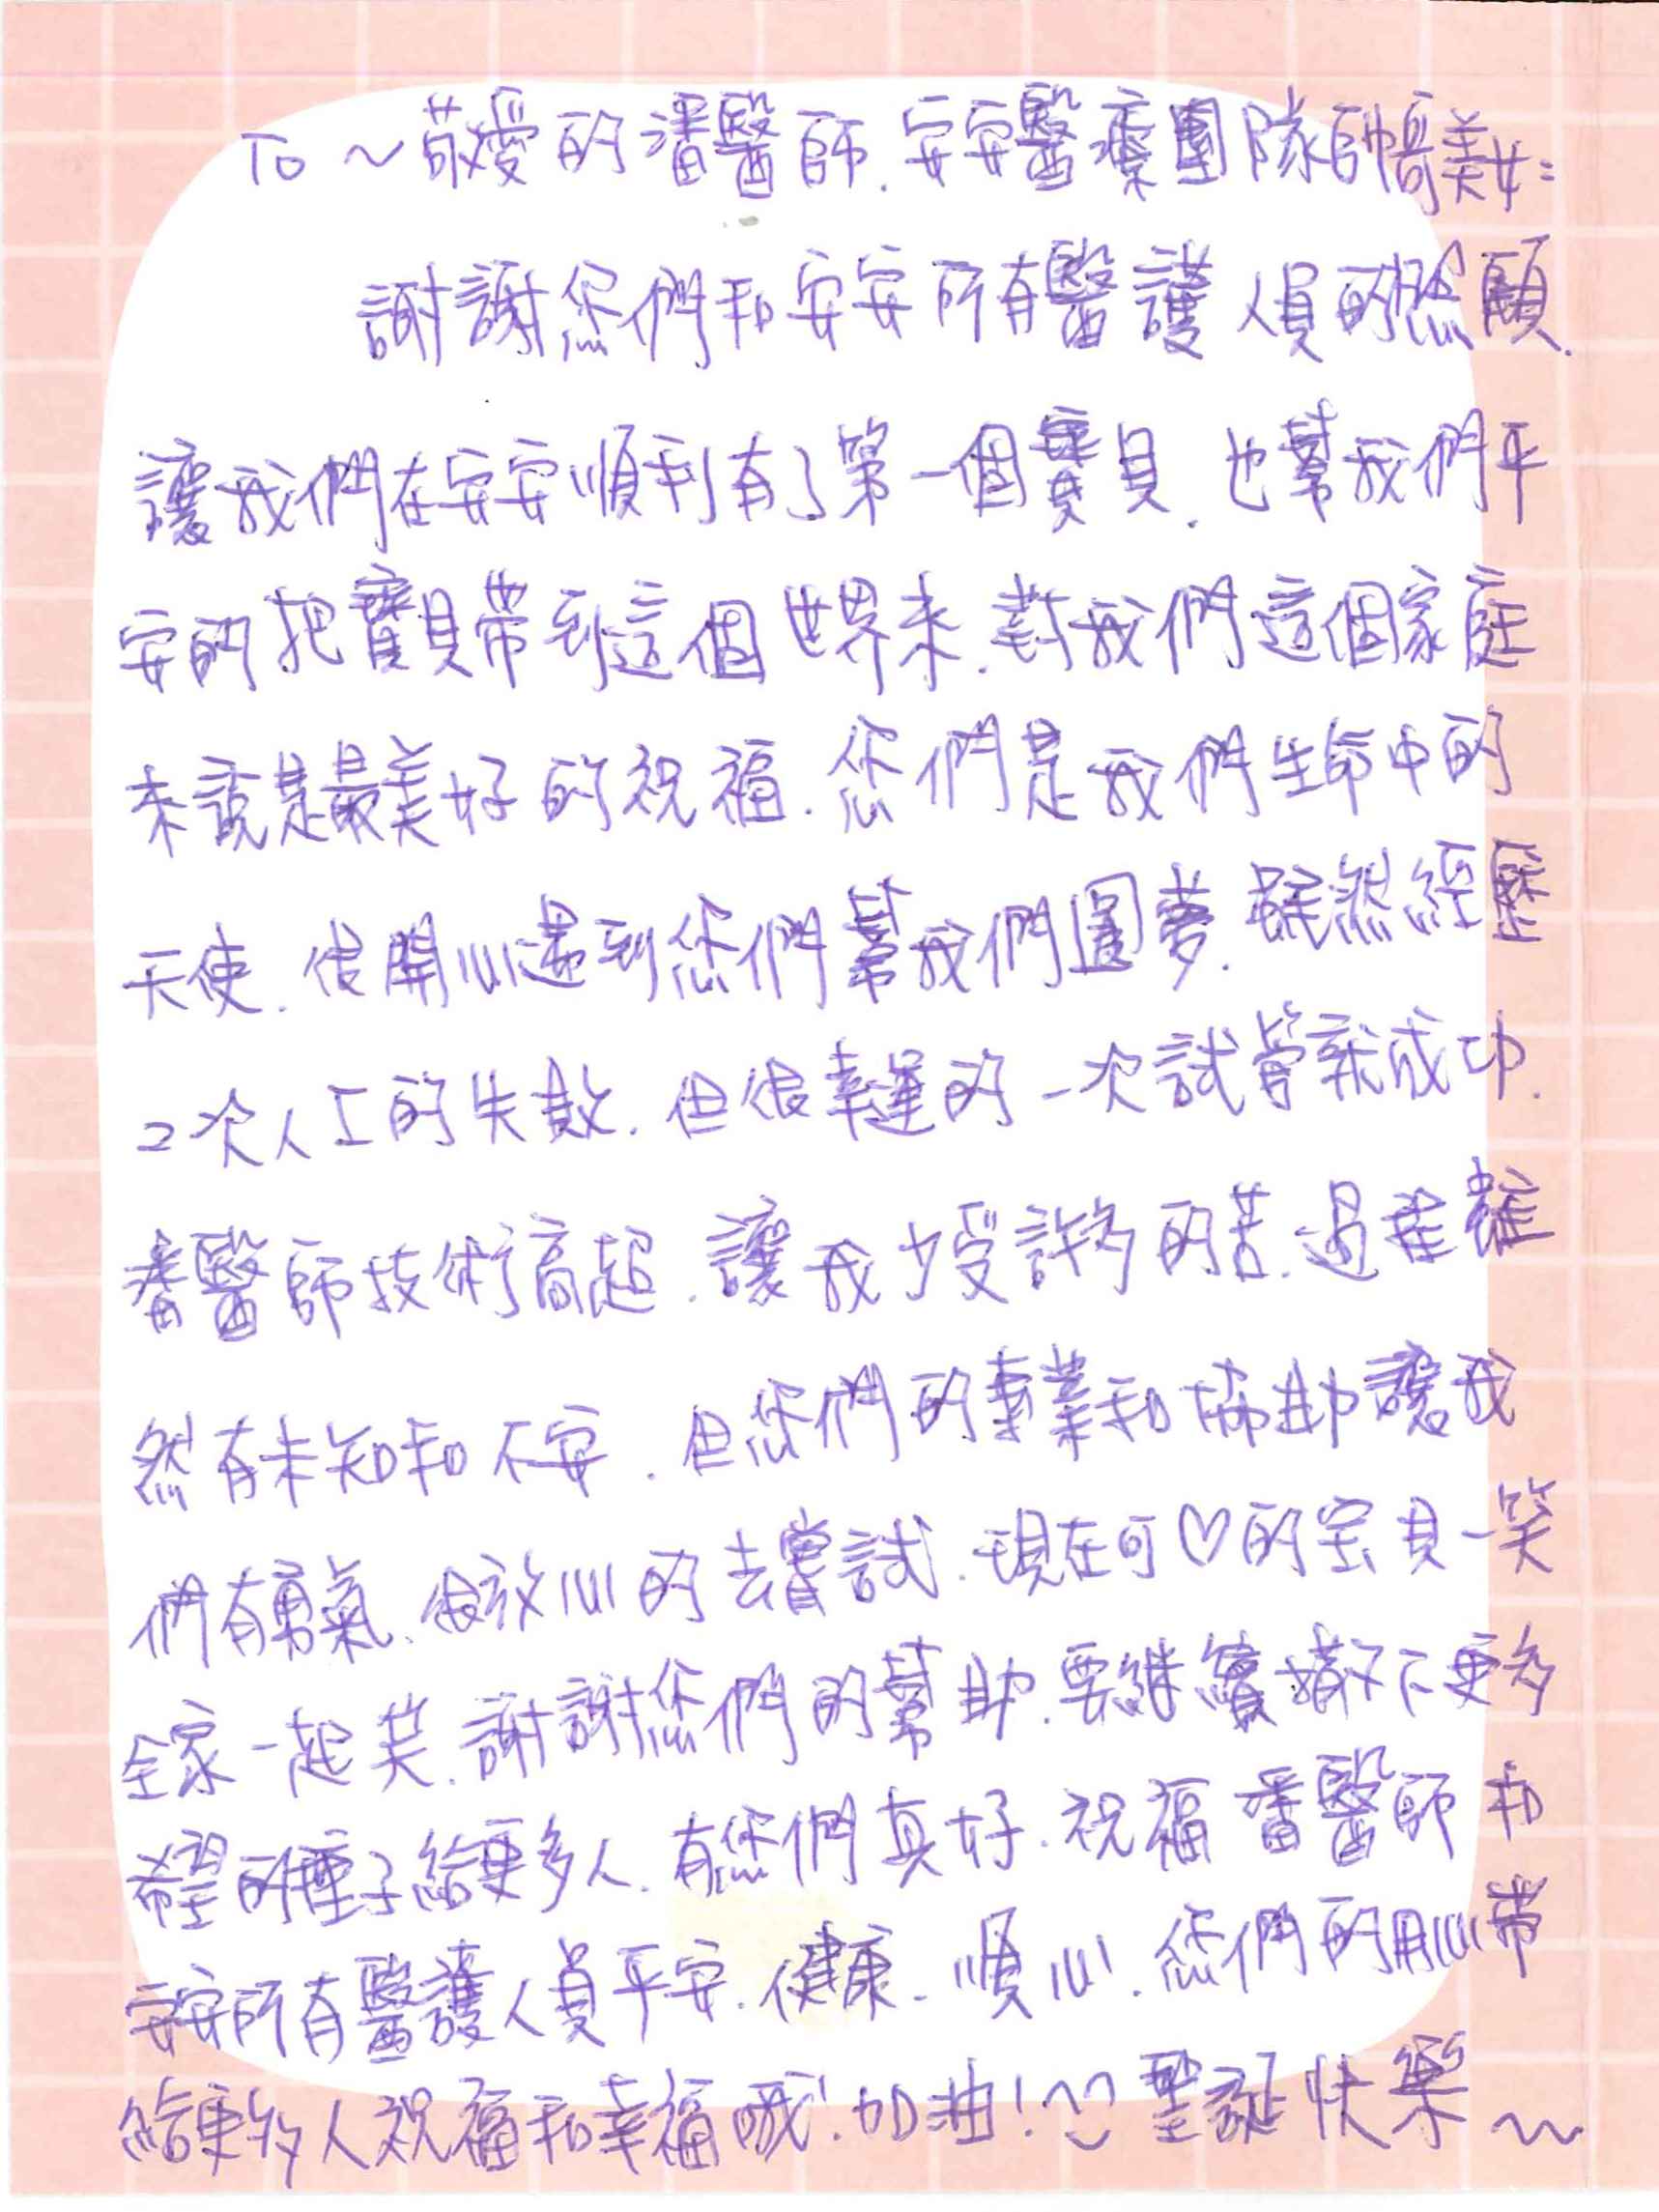 To ~敬愛的潘醫師.安安醫療團隊帥哥美女:
謝謝您們和安安所有醫護人員的照顧.
讓我們在安安順利有了第一個寶貝.也幫我們平
安的把寶貝帶到這個世界來.對我們這個家庭
來說是最美好的祝福.您們是我們生命中的
天使.很開心遇到您們幫我們圓夢.雖然經歷
2次人工的失敗.但很幸運的一次試管就成功.
番醫師技術高超.讓我少受許多的苦.過程雖
然有未知和不安.但您們的專業和協助讓我
們有勇氣.很放心的去嘗試.現在可♡的宝貝一笑
全家一起笑.謝謝您們的幫助.要継續撒下更多
希望的種子給更多人.有您們真好.祝福番醫師和
安安所有醫護人員平安.健康.順心.您們的用心帶
給更多人祝福和幸福哦!加油!聖誕快樂~